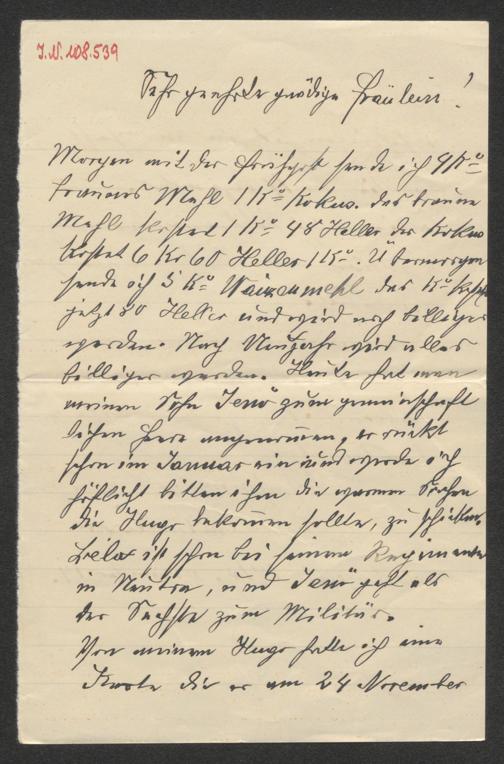 J.N. 108.539
Sehr geehrte gnädige Fräulein!
Morgen mit der Frühpost sende ich 4 Ko
braunes Mehl 1 Ko Kokus. das braune
Mehl kostet 1 Ko 48 Heller der Kokus
kostet 6 Kr 60 Heller 1 Ko. Übermorgen
sende ich 5 Ko Waizenmehl das Ko kostet
jetzt 80 Heller und wird noch billiger
werden. Nach Neujahr wird alles
billiger werden. Heute hat man
meinen Sohn Jenö zum gemeinschaft
lichen Heere angenommen, er rückt
schon im Januar ein und werde ich
höflichst bitten ihm die warmen Sachen
die Hugo bekommen sollte, zu schicken.
Bela ist schon bei seinem Regimente
in Neutra, und Jenö geht als
der Sechste zum Militär.
Von meinem Hugo hatte ich eine
Karte die er am 24 November